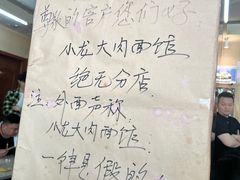 尊敬的客户您们好
小龙大肉面馆
绝无分店
注:外面声称
小龙大肉面馆
一律是假的